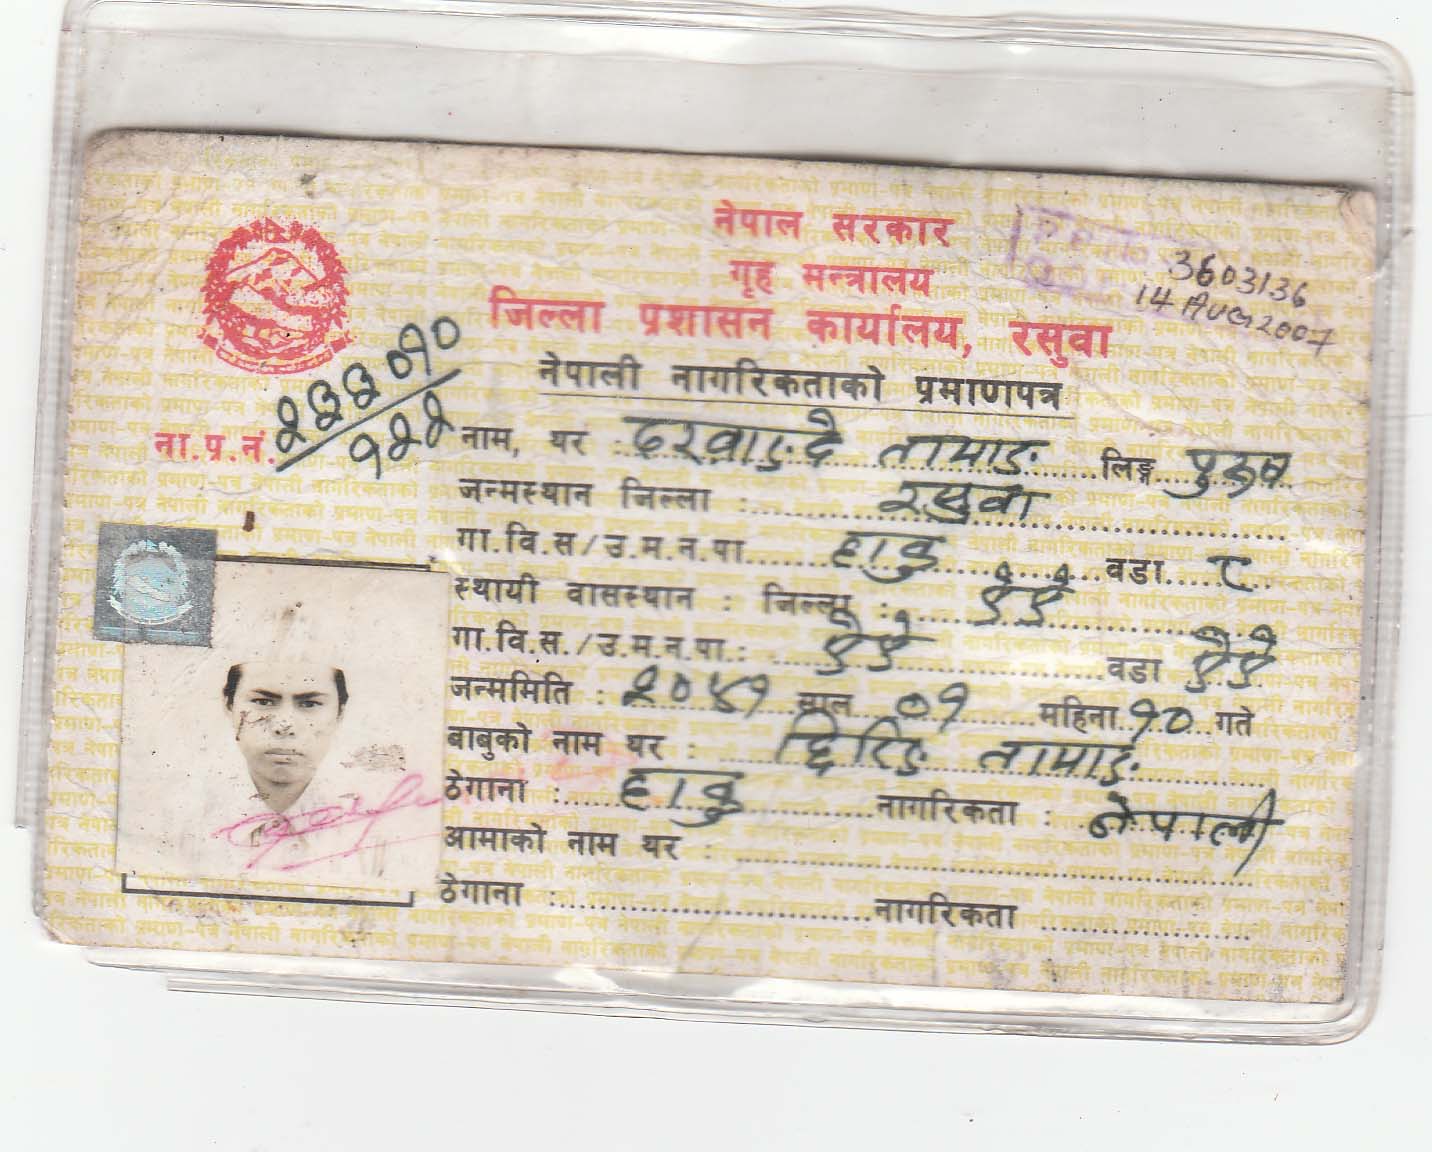 नेपाल सरकार
गृह मन्त्रालय
जिल्ला प्रशासन कार्यालय, रसुवा
3603136
14 AUG 2007
नेपाली नागरिकताको प्रमाणपत्र
ना.प.नं.
नाम, थर : तामाङ लिङ्ग पुरुष
जन्मस्थान जिल्ला : रसुवा
गा.वि.स/उ.म.न.पा. हाकु वडा ८
स्थायी वासस्थान : जिल्ला : ऐ ऐ
गा.वि.स./उ.म.न.पा.: ऐ ऐ वडा ऐ ऐ
जन्ममिति : २०४१ साल ०१ महिना १० गते
बाबुको नाम थर : छिरिङ तामाङ
ठेगाना : हाकु नागरिकता : नेपाली
आमाको नाम थर :
ठेगाना : नागरिकता